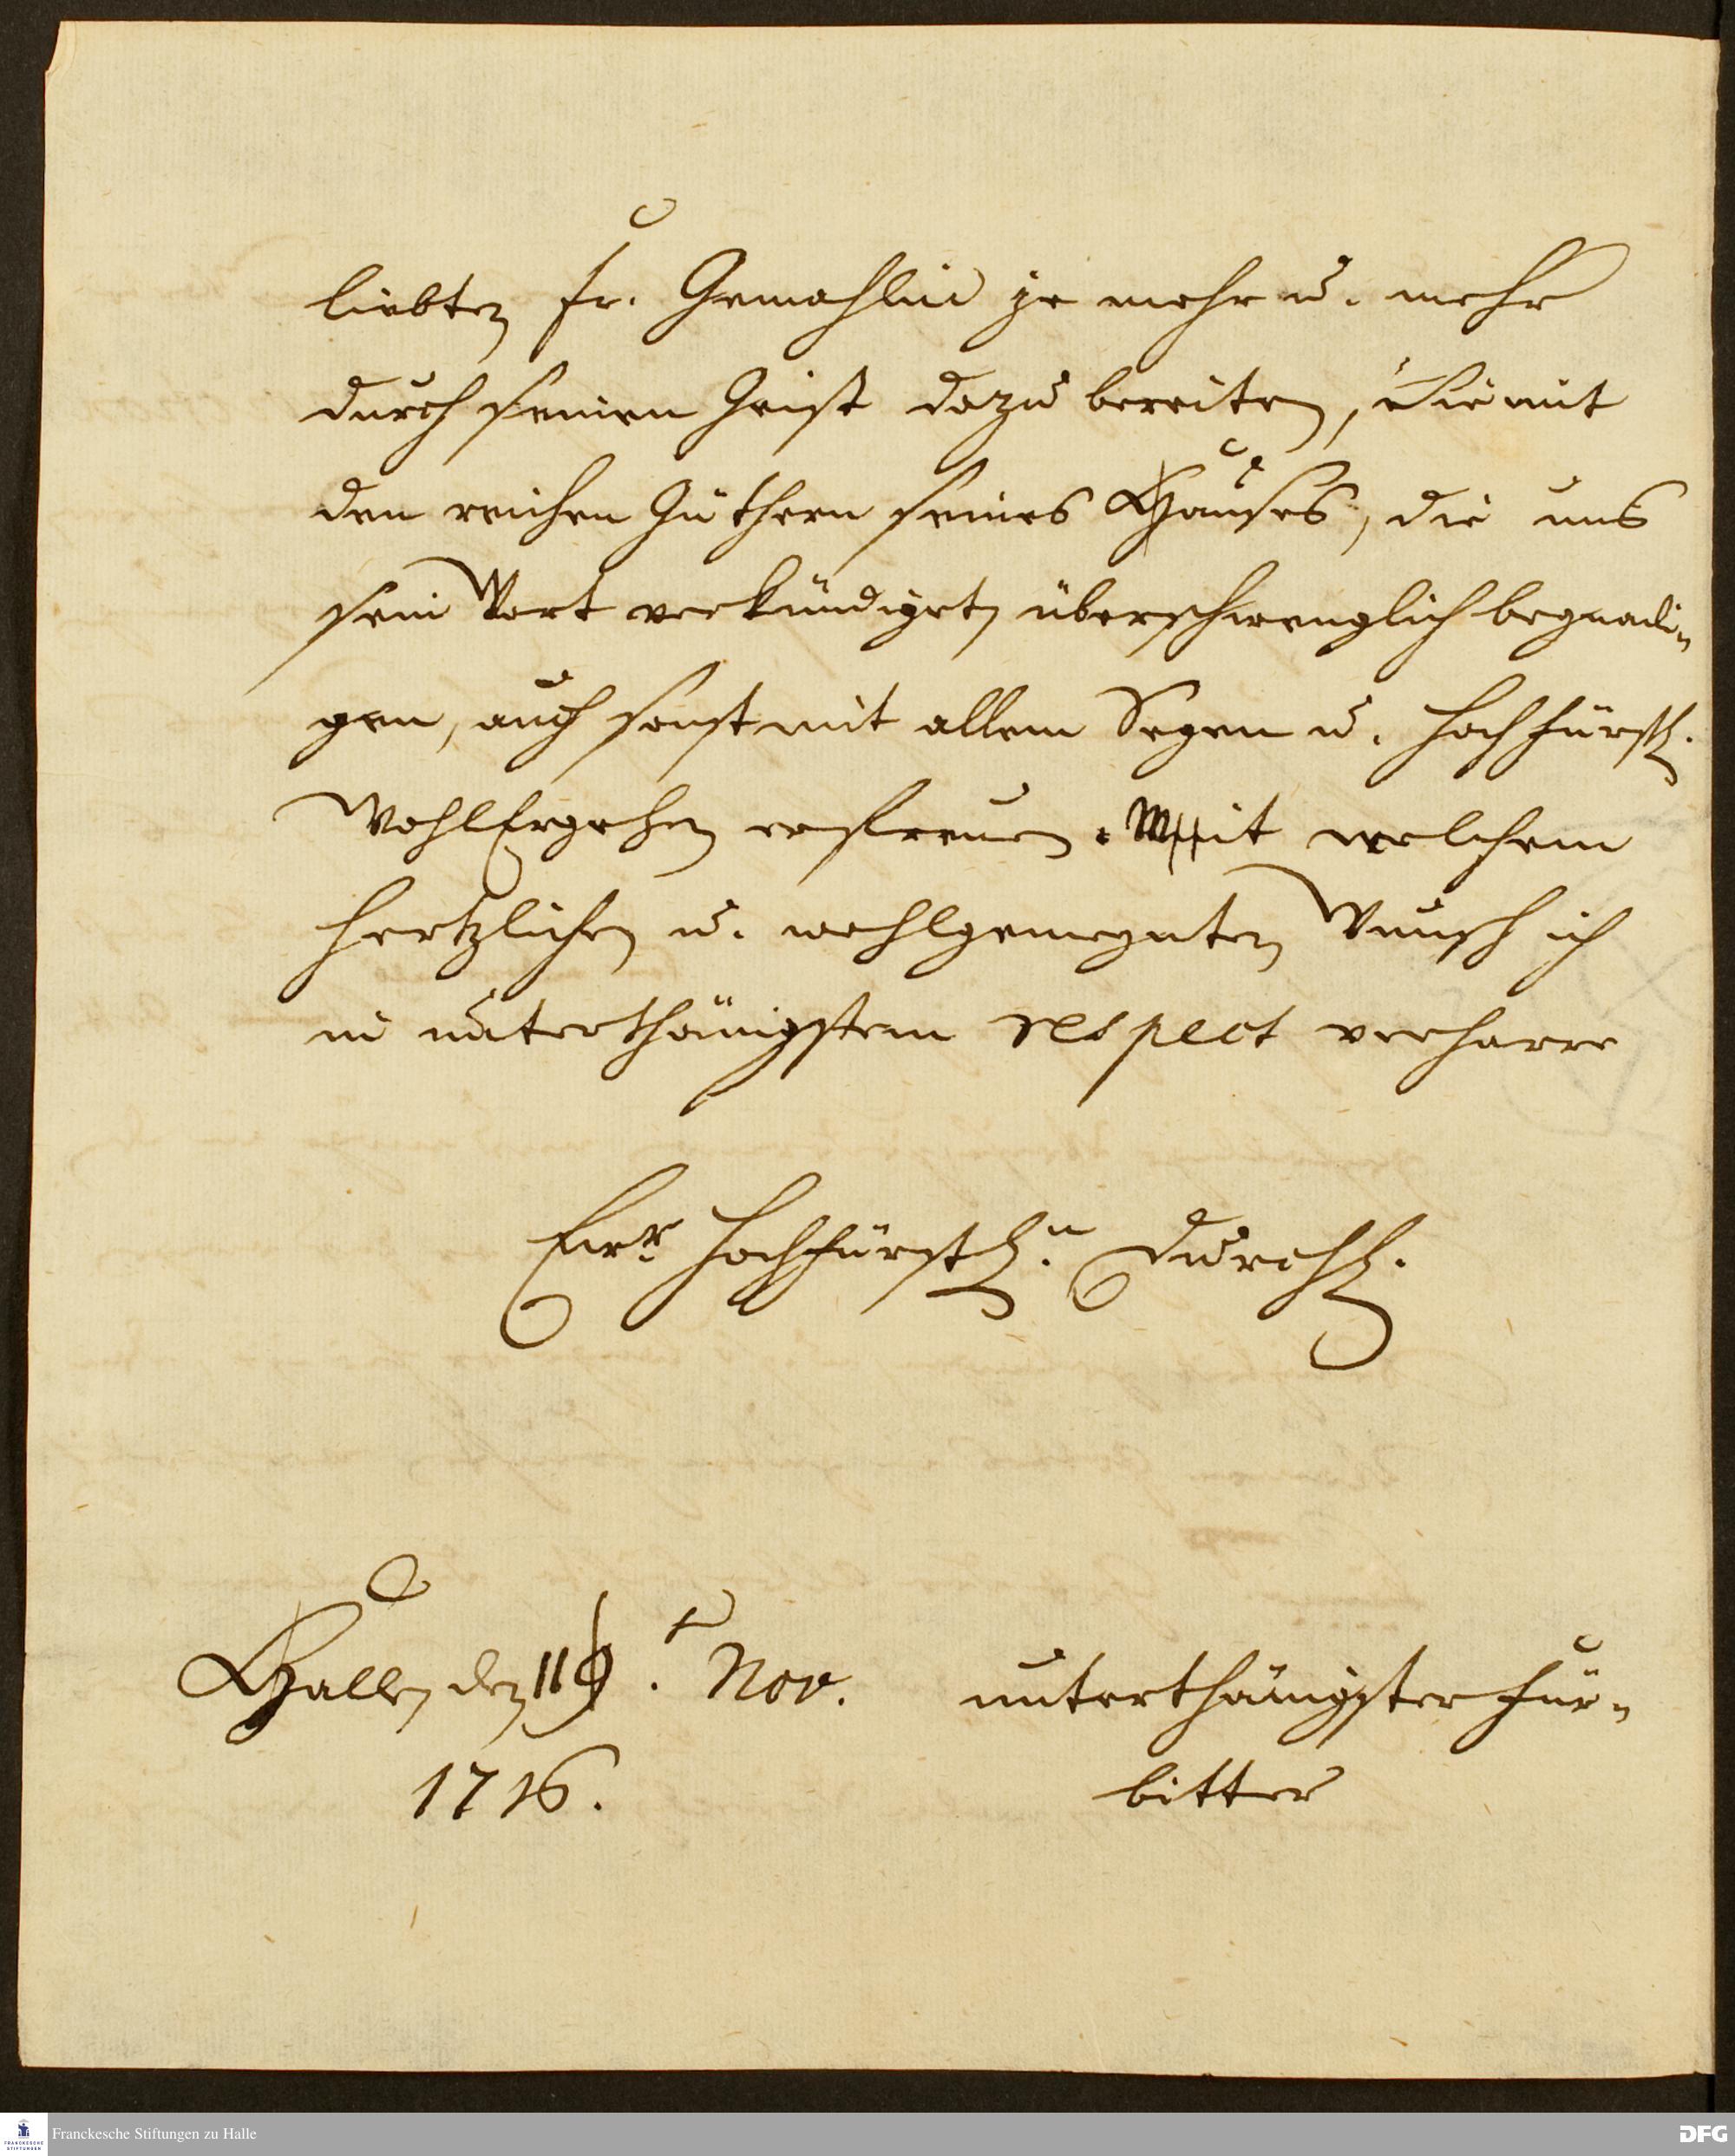 liebten Fr. Gemahlin je mehr u. mehr
durch seinen Geist dazu bereiten, Sie mit
den reichen Güthern seines Hauses, die uns
sein Wort verkündiget, überschwenglich begnadi-
gen, auch sonst mit allem Segen u. Hochfürstl.
WohlErgehen erfreuen. Mit welchem
hertzlichen u. wohlgemeynten Wunsch ich
in unterthänigstem respect verharre
Eurr Hochfürstl.n Durchl.
Halle, den Nov. unterthänigster Für-
1716. bitter
Franckesche Stiftungen zu Halle
FRANCKESCHE STIFTUNGEN
DFG